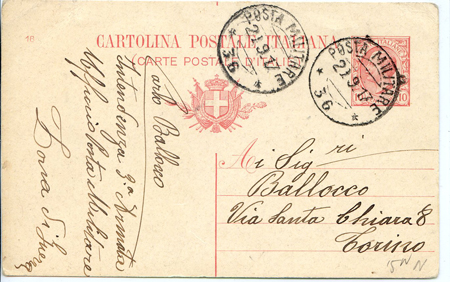 10
CARTOLINA POSTALE ITALIANA
(CARTE POSTALE D'ITALIE)
POSTA MILITARE
21.9.17
* 36 *
POSTA MILITARE
21.9.17
* 36 *
10
Ai Sig.ri
Ballocco
Via Santa Chiara 8
Torino
15
Carlo Ballocco
Intendenza 3a Armata
Ufficio Posta Militare
Zona di